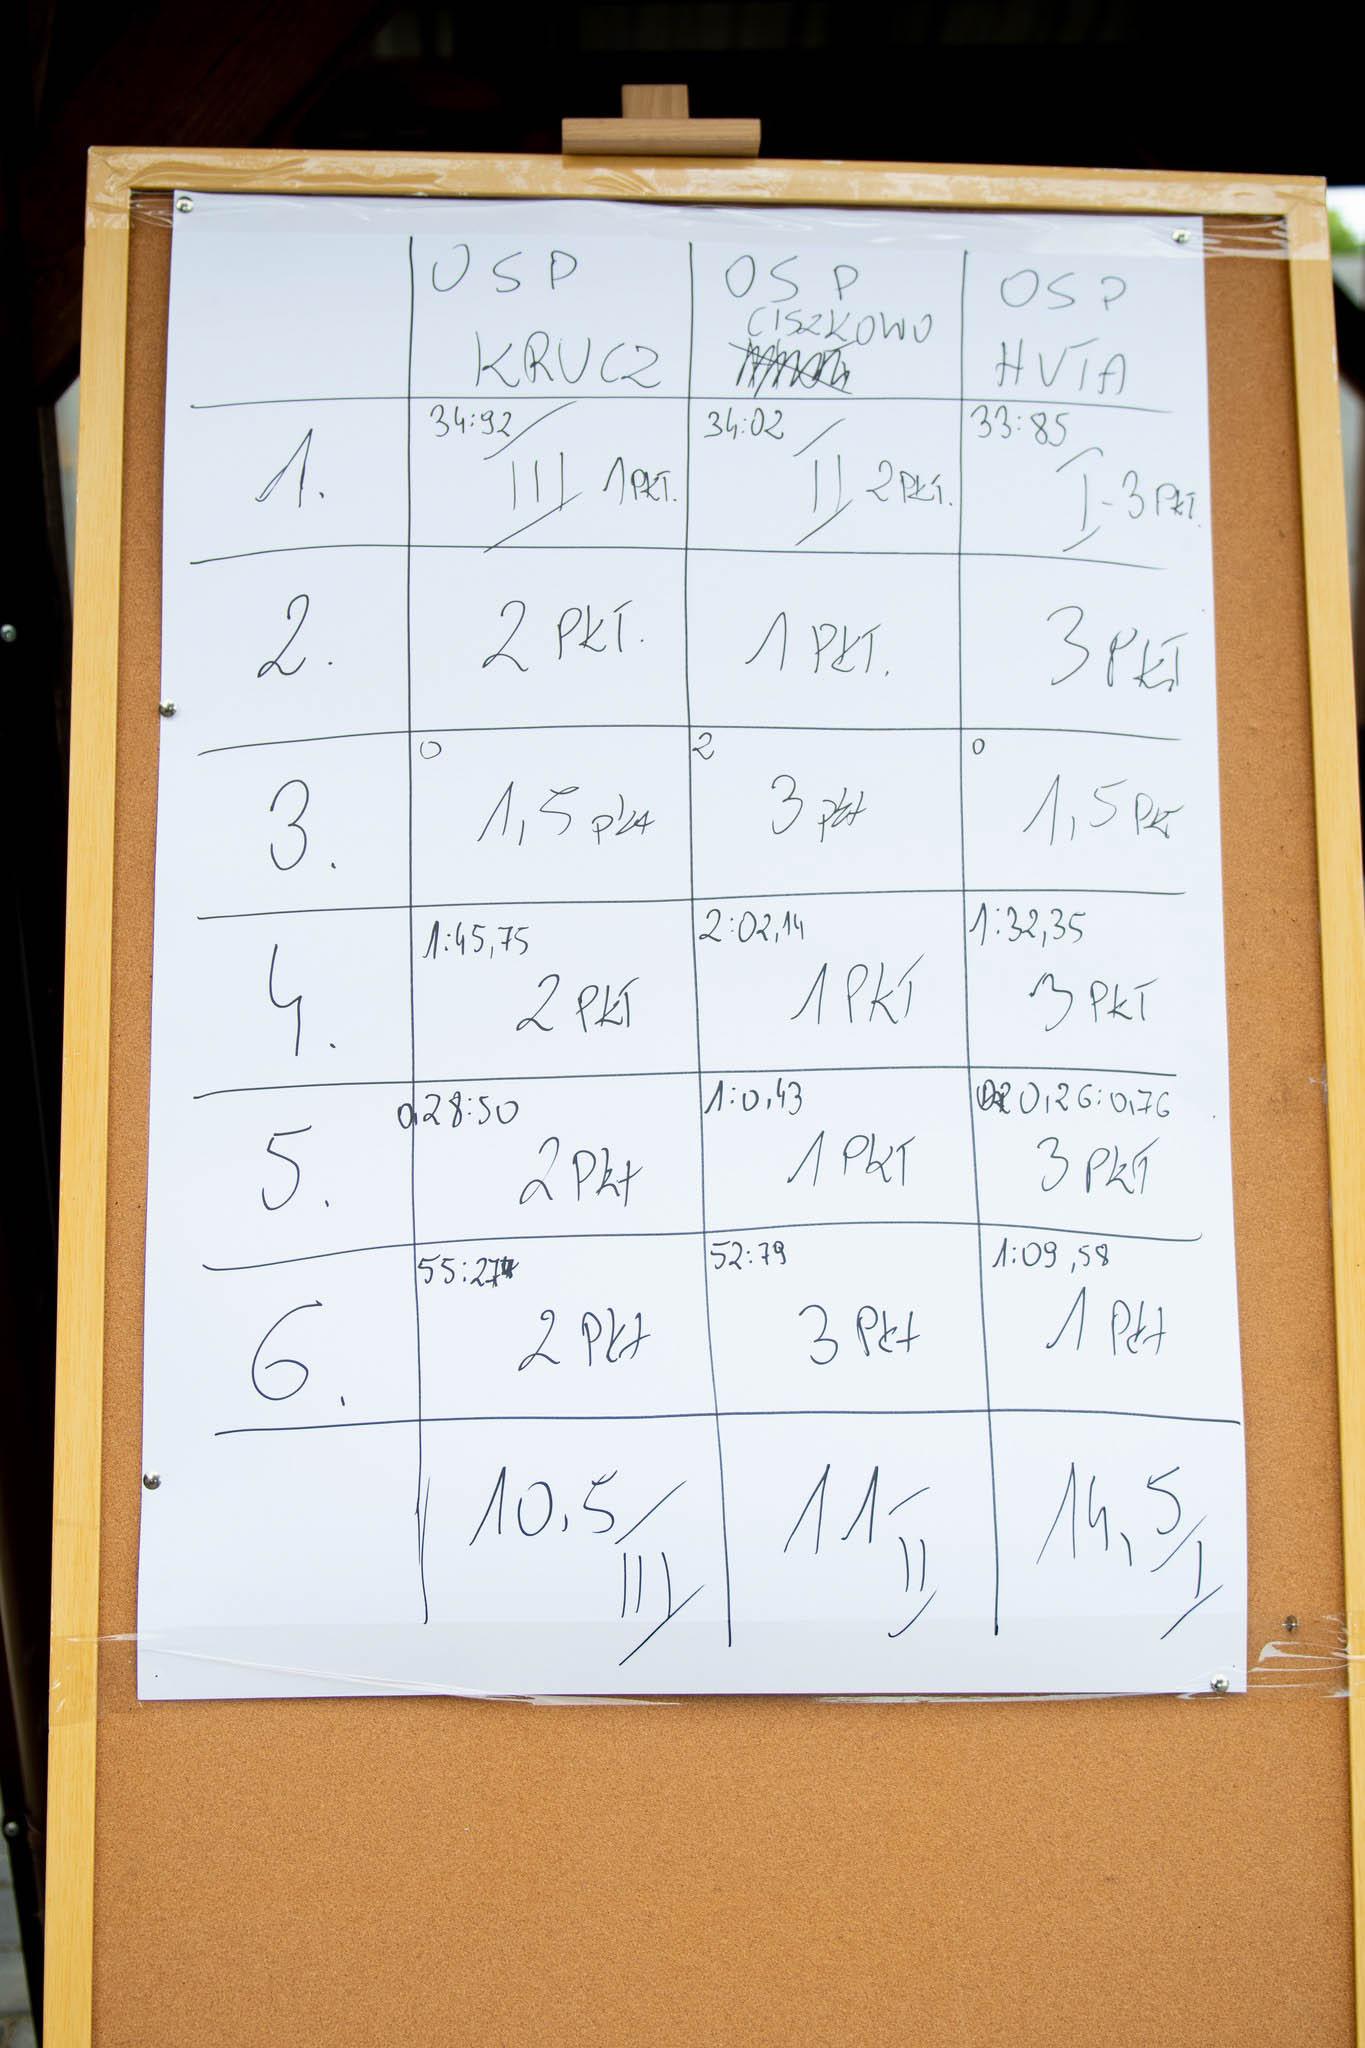 OSP KRUCZ
OSP CISZKOWO
OSP HUTA
1.
34:92 III 1 PKT.
34:02 II 2 PKT.
33:85 I - 3 PKT.
2.
2 PKT.
1 PKT.
3 PKT
3.
0 1,5 pkt
2 3 pkt
0 1,5 PKT
4.
1:45,75 2 PKT
2:02,14 1 PKT
1:32,35 3 PKT
5.
0,28:50 2 Pkt
1:0,43 1 PKT
0,26:0,76 3 PKT
6.
55:27 2 Pkt
52:79 3 Pkt
1:09,58 1 Pkt
10,5 III
11 II
14,5 I